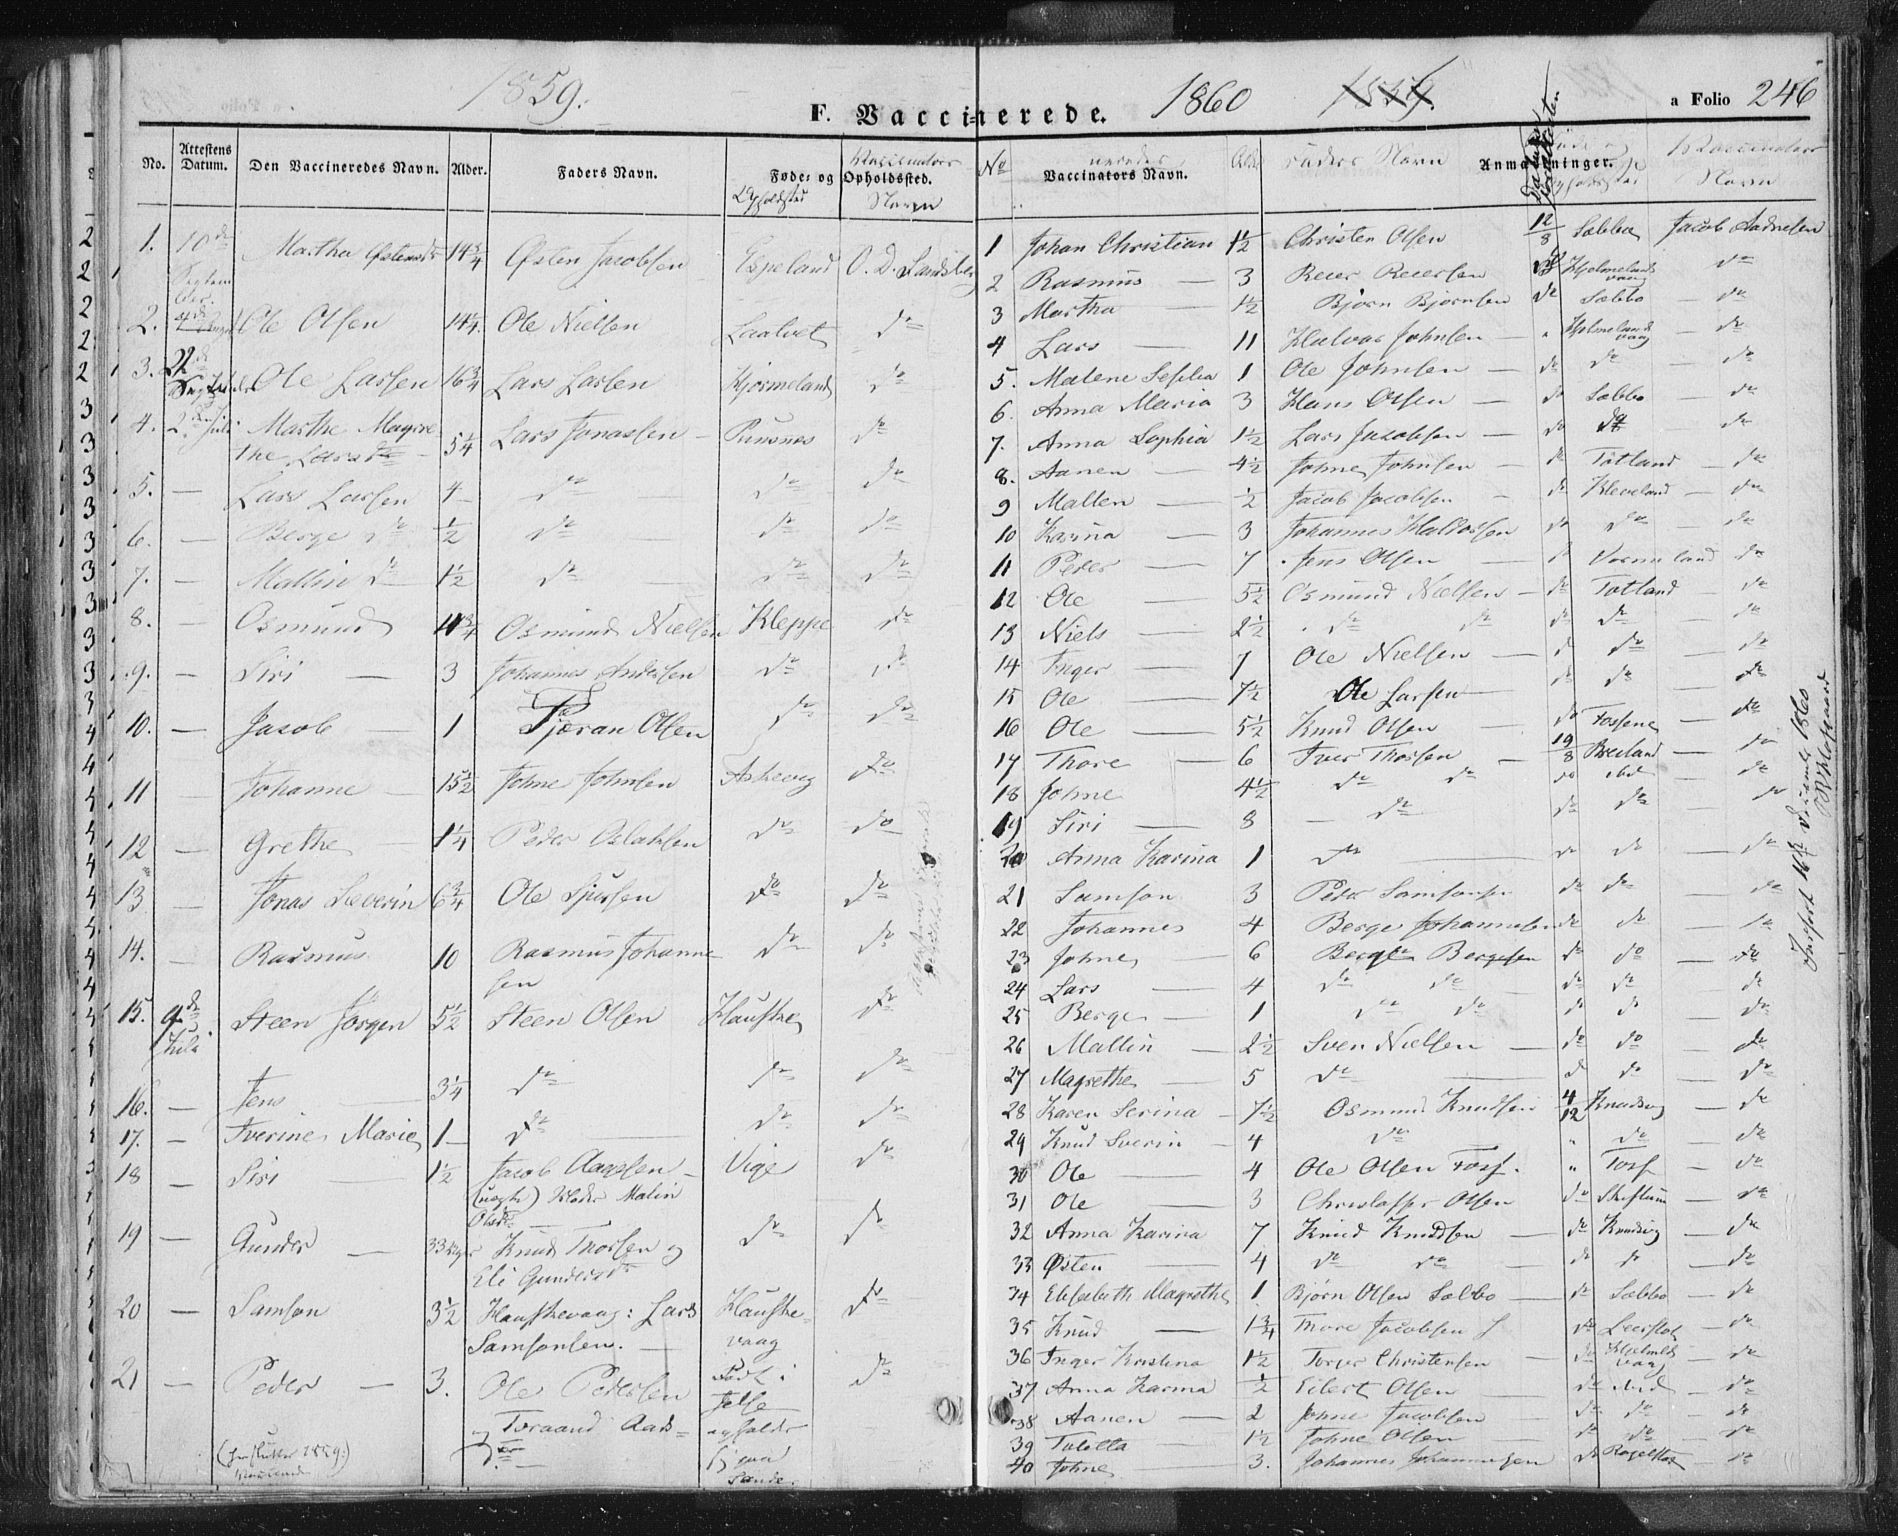 1859.
F. Vaccinerede. 1860 1859. a Folio 246
No. Attestens Datum. Den Vaccineredes Navn. Alder. Faders Navn. Føde- og Opholdssted. Vaccinators Navn
No Vaccinators Navn. Faders Navn Anmærkninger. Vaccinators Navn
1. 10de September. Martha Østensdr 14 3/4 Østen Jacobsen Espeland O. D. Sandsberg
2. Ole Olsen 14 1/4. Ole Nielsen Laalvet do
3. Ole Larsen 16 3/4 Lars Larsen Hjørmeland do
4. 2den Juli Marthe Magrethe Larsdr 5 1/4 Lars Jonassen Punsnes do
5. — Lars Larsen 4 do do do
6. — Berge do 1/2 do do do
7. — Mallin do 1 1/2 do do do
8. — Osmund Osmund Nielsen Kleppe do
9. — Siri — 3 Johannes Andersen do do
10. — Jacob — 1 Tjøran Olsen do do
11 — Johanne — 15 1/2 Johne Johnsen Askevig do
12 — Grethe 1 1/4 Peder Oslaksen do do
13 — Jonas Severin 6 3/4 Ole Sjursen do do
14. — Rasmus 10 Rasmus Johannesen do do
15. 9de Juli Steen Jörgen 5 1/2 Steen Olsen Hauske do
16. — Jens 3 1/4 do do do
17. — Iverine Marie 1 — do do do
18 — Siri — 1 1/2 Jacob Aagesen — Vige do
(uægte) Moder Malin Olsdr
19 — Gunder — Knud Thorsen og Eli Gundersdr do do
20 — Samson 3 1/2 Hauskevaag: Lars Samsonsen. Hauskevaag do
21 — Peder — 3. Ole Pedersen Født i Jelse do
1 Johan Christian 1 1/2 Christen Olsen 12/8 Sæbbø Jacob Aadnesen
2 Rasmus — 3 Reier Reiersen do Hjelmelandsvaag do
3 Martha — 1 1/2 Bjørn Bjørnsen do Sæbbø do
4 Lars — 11 Halvor Johnsen — " Hjelmelandsvaag — do
5. Malene Sesilia 1 Ole Johnsen — do do — do
6. Anna Maria 3 Hans Olsen — do Sæbbø — do
7. Anna Sophia 1 1/2 Lars Jacobsen — do do — do
8. Aanen — 4 1/2 Johne Johnsen — do Totland — do
9 Mallen — 1/2 Jacob Jacobsen — do Kleveland — do
10 Karina — 3 Johannes Haldorsen do do — do
11 Peder — 7 Jens Olsen — do Vormeland do
12 Ole — 5 1/2 Osmund Nielsen — do Totland — do
13 Niels — 2 1/2 do do do do — do
14 Inger — 7 Ole Nielsen — do do — do
15 Ole — 7 1/2 Ole Larsen — do do — do
16 Ole — 5 1/2 Knud Olsen — do Fossene — do
17 Thore — 6 Iver Thorsen — 19/8 Breiland — do
18 Johne 4 1/2 do do do do — do
19 Siri — 8 — do do do — do
20 Anna Karina 1 do — do do — do
21 Samson 3 Peder Samsonsen do do — do
22 Johannes 4 Berge Johannesen do do — do
23 Johne — 6 Berge Bergesen do do — do
24 Lars — 4 do do do do — do
25 Berge — 1 do do do do — do
26 Mallin — 2 1/2 Sven Nielsen — do do — do
27 Magrethe — 5 do — do do — do
28 Karen Serina — 7 1/2 Osmund Knudsen 4/12 Knudsvig — do
29 Knud Sverin — 4 do — " do — do
30 Ole — 4 Ole Olsen Foss. " Foss — do
31 Ole — 3 Christoffer Olsen do — do
32 Anna Karina 7 Knud Knudsen — do Knudsvig — do
33 Østen — 4 do do do do — do
34 Elisabeth Magrethe 1 Bjørn Olsen Sæbbø — do Sæbbø — do
35 Knud — 1 3/4 Thore Jacobsen do — do
36 Inger Kristina 1 1/2 Torger Christensen — do — do
37 Anna Karina 1/2 Eilert Olsen — do — do
38 Aanen — 2 Johne Jacobsen — do do — do
39 Tolotta 1 1/2 Johne Olsen — do do — do
40 Johne 3. Johannes Johannesen do — do